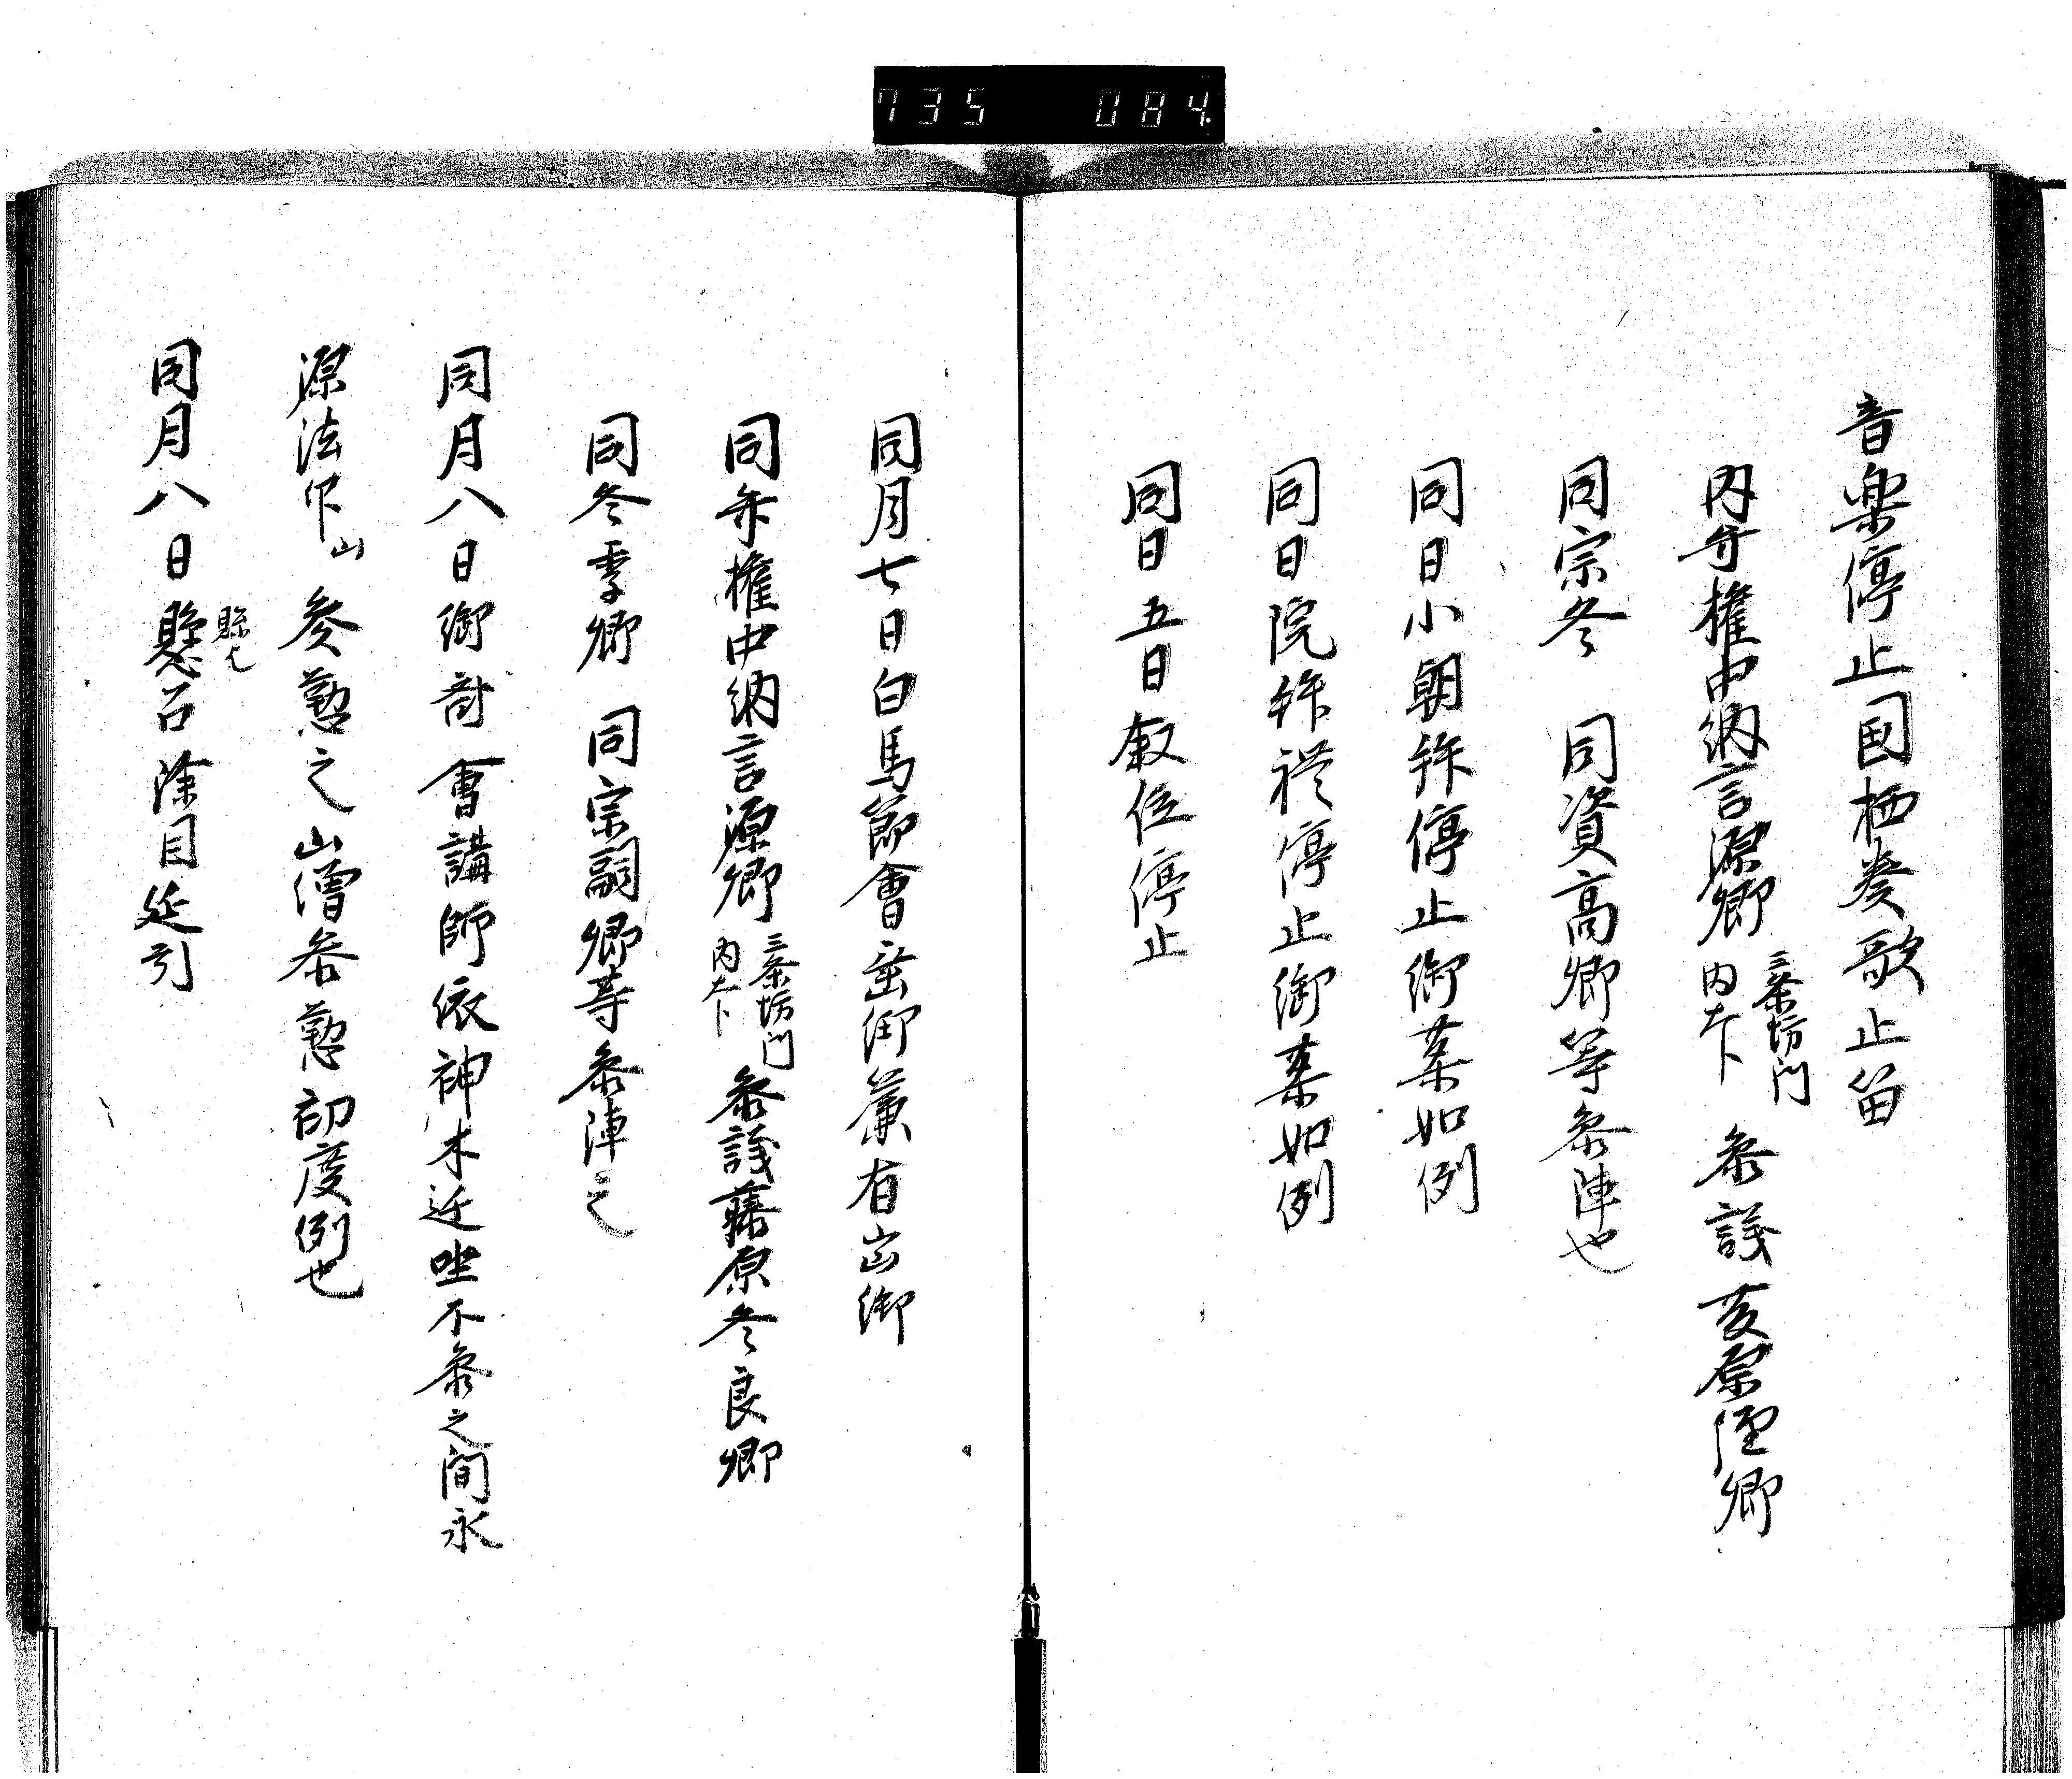 735 084
音楽停止国栖奏歌止笛
内弁権中納言源卿 三条坊門内大卜 参議藤原隆卿
同宗冬 同資高卿等参陣也
同日小朝拜停止御薬如例
同日院拜礼停止御薬如例
同日五日叙位停止
同月七日白馬節會垂御簾有出御
同弁権中納言源卿 三条坊門内大卜 参議藤原冬良卿
同冬季卿 同宗嗣卿等参陣之
同月八日御斎會講師依神木近坐不参之間永
源法印山 参懃之山僧参懃初度例也
同月八日懸召除目延引
縣乀